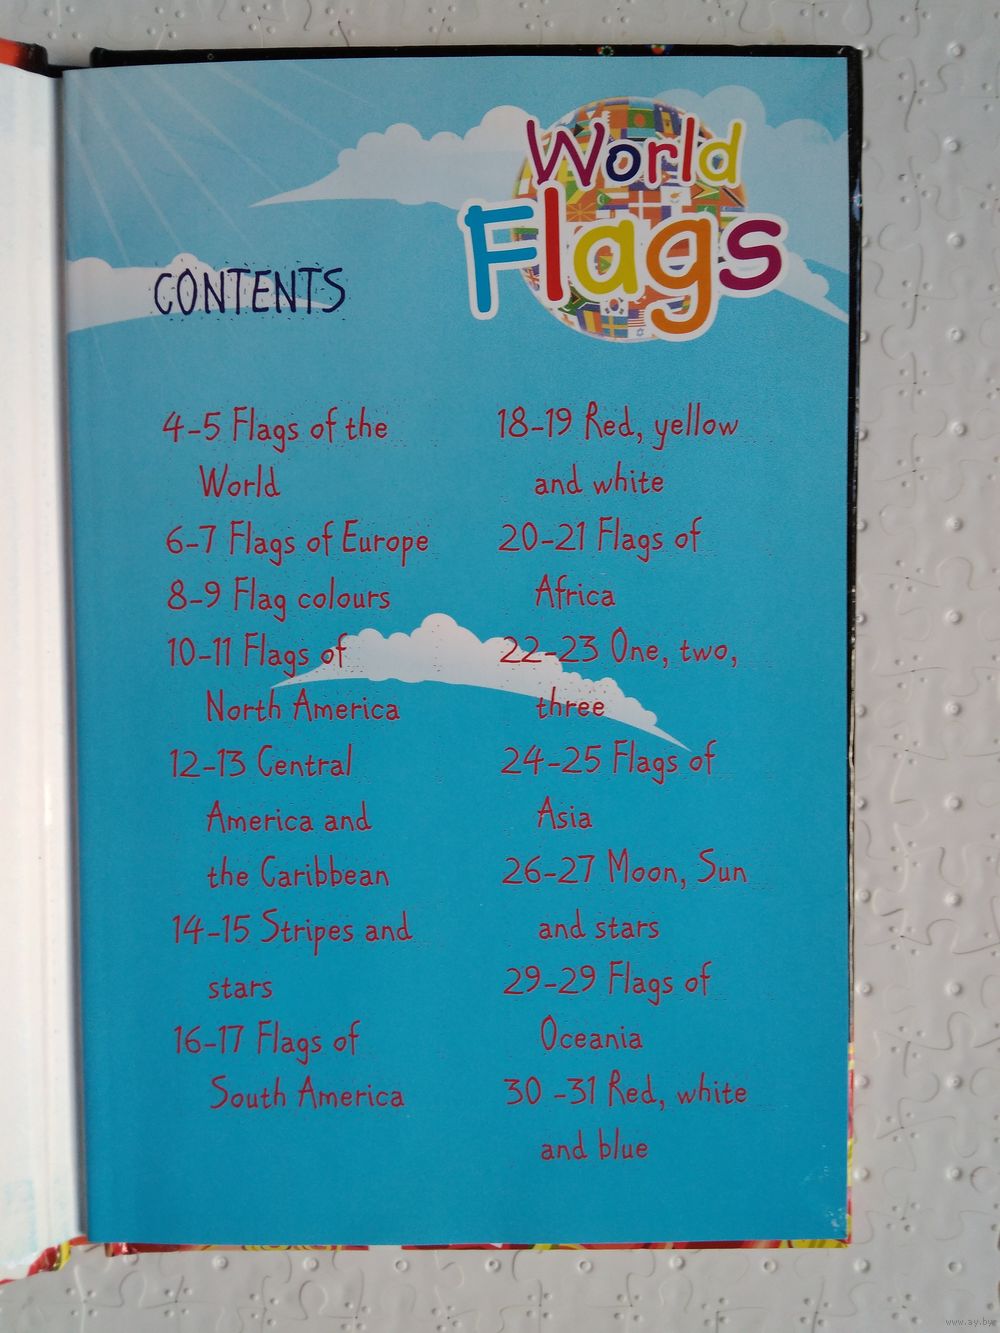 World
Flags
CONTENTS
4-5 Flags of the
World
6-7 Flags of Europe
8-9 Flag colours
10-11 Flags of
North America
12-13 Central
America and
the Caribbean
14-15 Stripes and
stars
16-17 Flags of
South America
18-19 Red, yellow
and white
20-21 Flags of
Africa
22-23 One, two,
three
24-25 Flags of
Asia
26-27 Moon, Sun
and stars
29-29 Flags of
Oceania
30 -31 Red, white
and blue
www.ay.by